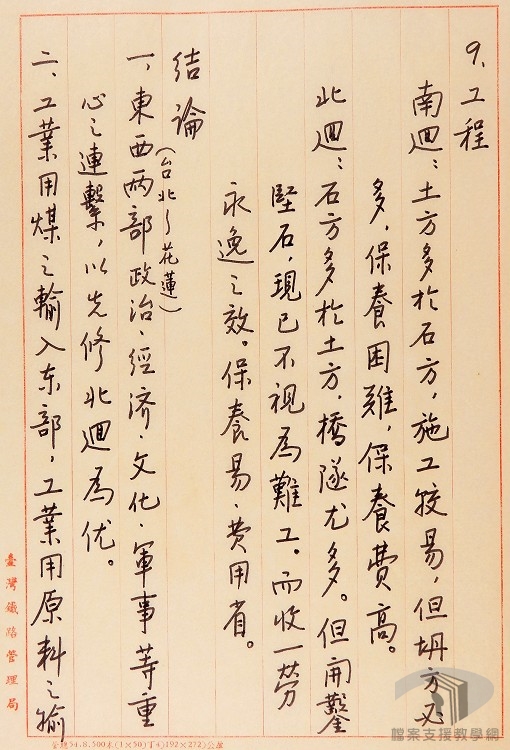 9.工程
南迴：土方多於石方，施工較易，但坍方必
多，保養困難，保養費高。
北迴：石方多於土方，橋隧尤多。但開鑿
堅石，現已不視為難工。而收一勞
永逸之效。保養易、費用省。
結論
(台北～花蓮)
一、東西两部政治、經济、文化、軍事等重
心之連繫，以先修北迴為优。
二、工業用煤之輸入东部，工業用原料之输
臺灣鐵路管理局
檔案支援教學網
54.8.500本(1×50)丁4)192×272)公厘